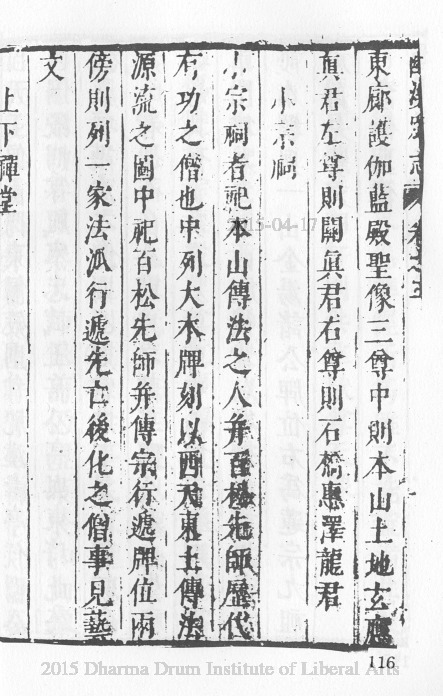 東廊護伽藍殿聖像三尊中則本山土地玄應
眞君左尊則關眞君右尊則石橋惠澤龍君
小宗祠
小宗祠者祀本山傳法之人并百松先師歷代
有功之僧也中列大木牌刻以西天東土傳法
源流之圖中祀百松先師并傳宗行遞牌位兩
傍則列一家法派行遞先亡後化之僧事見藝
文
上下禪堂
2015-04-17
116
2015 Dharma Drum Institute of Liberal Arts